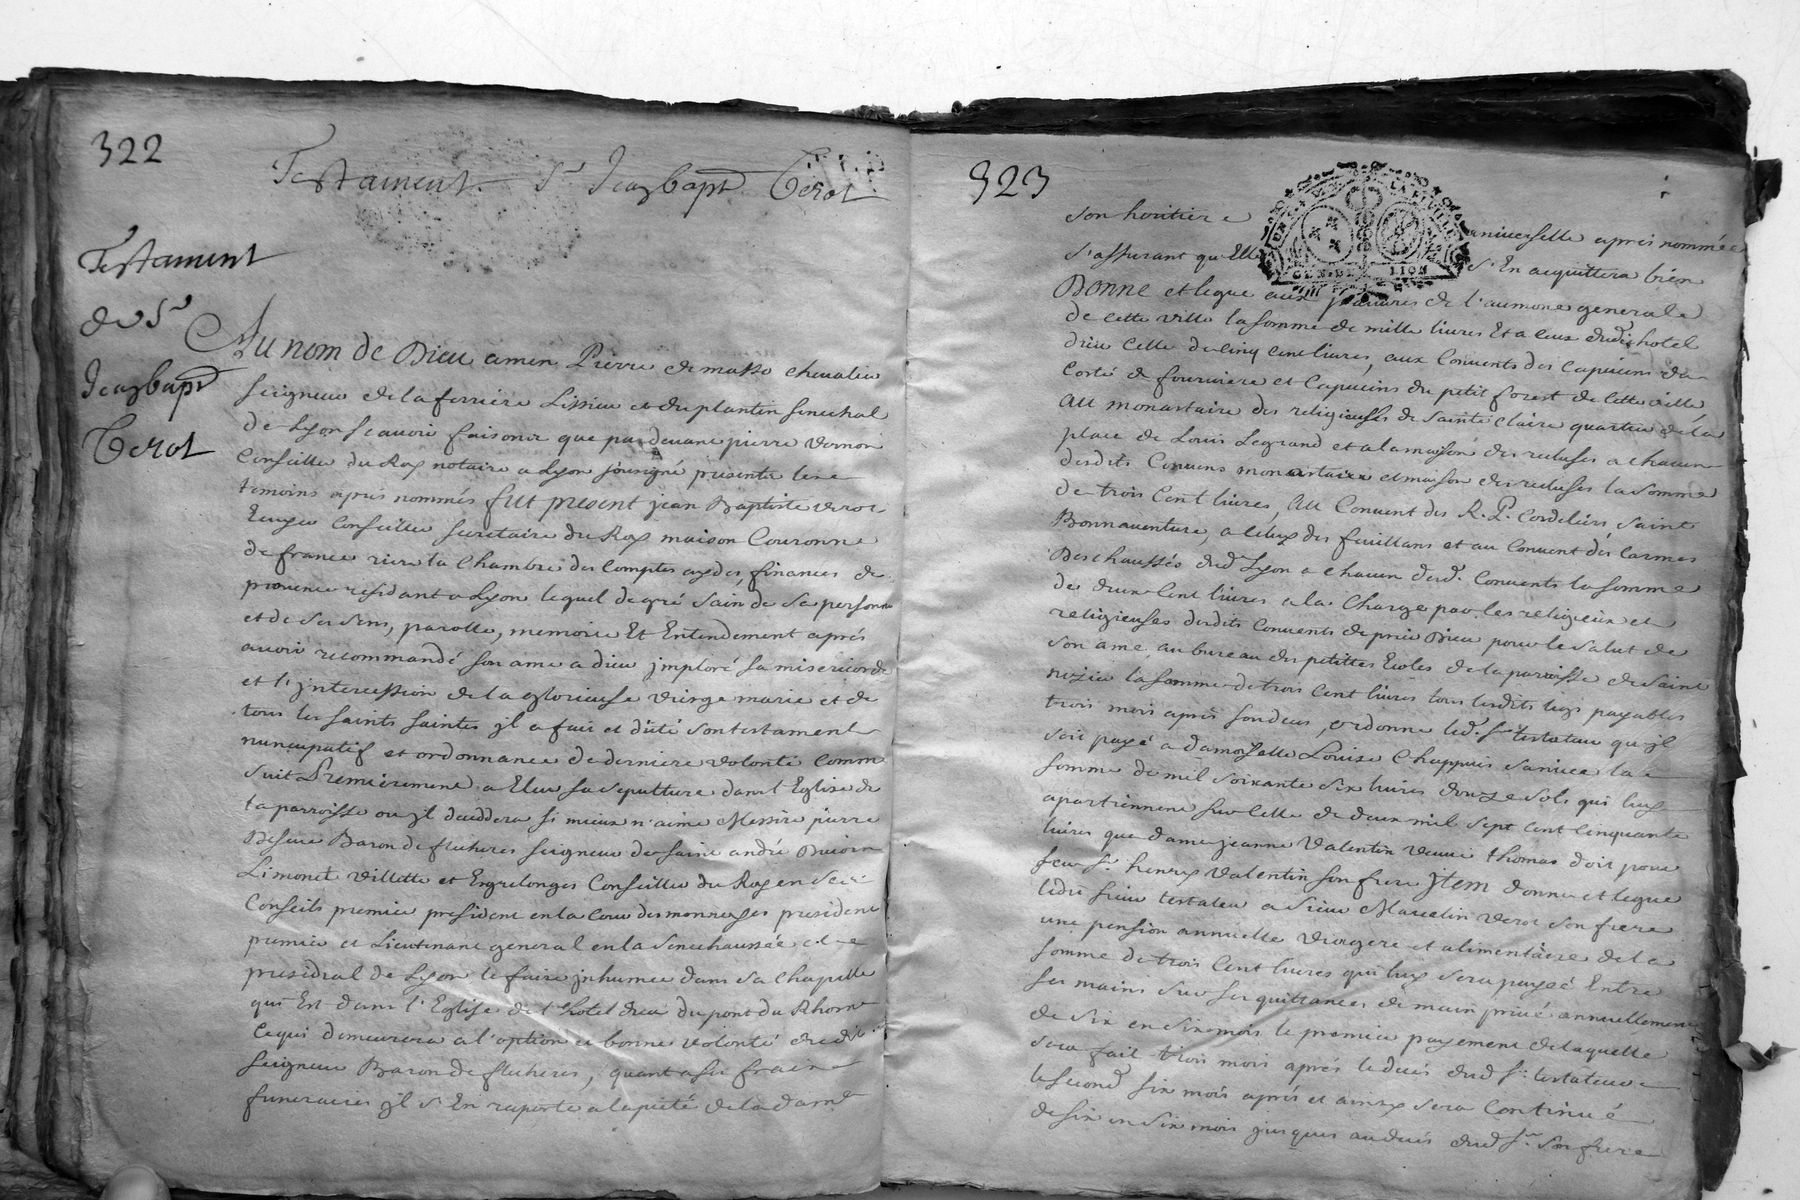 322
Testament. Sr Jean bapt Verot
Testament
du Sr
Jean bapt
Verot
Au nom de Dieu amen Pierre de masso chevalier
seigneur de la ferriere Lissieu et du plantin senechal
de Lyon scavoir faisons que par devant pierre vernon
Conseiller du Roy notaire a Lyon soussigné presents les
temoins apres nommés fut present jean Baptiste verot
Conseiller secretaire du Roy maison Couronne
de france riere la Chambre des Comptes aydes, finances de
provence residant a Lyon lequel de gré sain de sa personne
et de ses sens, parolle, memoire Et Entendement aprés
avoir recommandé son ame a dieu jmploré sa misericorde
et l'jntercession de la glorieuse vierge marie et de
tous les saints saintes jl a fait et dicté son testament
nuncupatif et ordonnance de derniere volonté Comme
suit Premierement a Eleu sa sepulture dans l'Eglise de
la parroisse ou jl deceddera si mieux n'aime Messire pierre
Deseve Baron de flecheres seigneur de saint andré
Limonet villette et Engrelonges Conseiller du Roy en ses
Conseils premier president en la Cour des monnoyes president
premier et Lieutenant general en la Senechaussée et
presidial de Lyon le faire jnhumer dans sa Chapelle
qui Est dans l'Eglise de l'hotel dieu du pont du Rhone
Ce qui demeurera a l'option et bonne volonté dudit
seigneur Baron de flecheres, quant a ses frais
funeraires jl s'En raporte a la pieté de la dame
323
son heritiere universelle aprés nommée
s'assurant qu'Elle s'En acquittera bien
Donne et legue aux pauvres de l'aumone generale
de cette ville la somme de mille livres Et a ceux dud. hotel
dieu Celle de Cinq Cent livres, aux Couvents des Capucins du
Costé de fourviere et Capucins du petit forest de Cette ville
au monastaire des religieuses de sainte Claire quartier de la
place de Louis Legrand et a la maison des recluses a chacun
desdits Couvens monastaires et maison des recluses la somme
de trois Cent livres, au Couvent des R. P. Cordeliers saint
Bonnaventure, a Celuy des feuillans et au Couvent des Carmes
Deschaussés dud. Lyon a chacun desd. Couvents la somme
de deux Cent livres a la Charge par les religieux et
religieuses desdits Couvents de prier Dieu pour le salut de
son ame, au bureau des petittes Ecoles de la paroisse de Saint
nizier la somme de trois Cent livres tous lesdits legs payables
trois mois aprés son deces, ordonne led. Sr testateur qu'jl
soit payé a damoyselle Louise Chappuis la
somme de mil soixante six livres douze sols qui luy
apartiennent sur Celle de deux mil sept Cent Cinquante
livres que dame jeanne valentin veuve thomas doit pour
feu Sr henry valentin son frere jtem donne et legue
ledit sieur testateur a sieur Marcelin verot son frere
une pension annuelle viagere et alimentaire de la
somme de trois Cent livres qui luy sera payée Entre
ses mains sur ses quittances de main privé annuellement
de six en six mois le premier payement de laquelle
sera fait trois mois aprés le deces dud Sr testateur
le second six mois aprés et ainsy sera Continué
de six en six mois jusques au deces dud Sr son frere